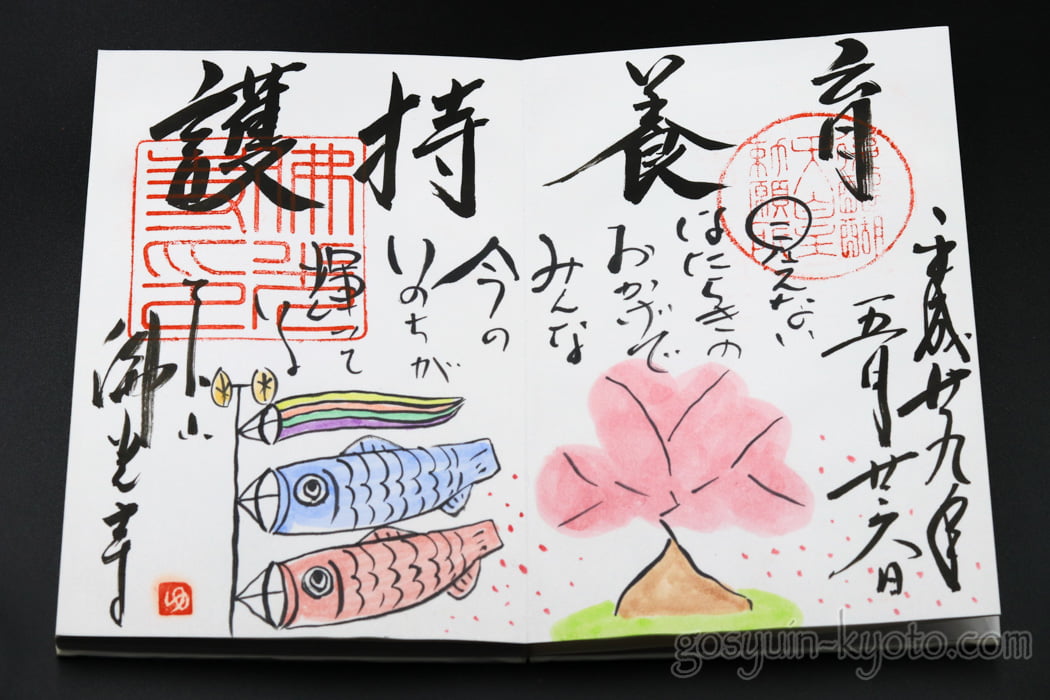 平成廿九年
五月廿六日
育養持護
後醍醐
天皇
勅願所
見えない
はたらきの
おかげで
みんな
今の
いのちが
輝いて
いる
佛光寺
ゆ
gosyuin-kyoto.com